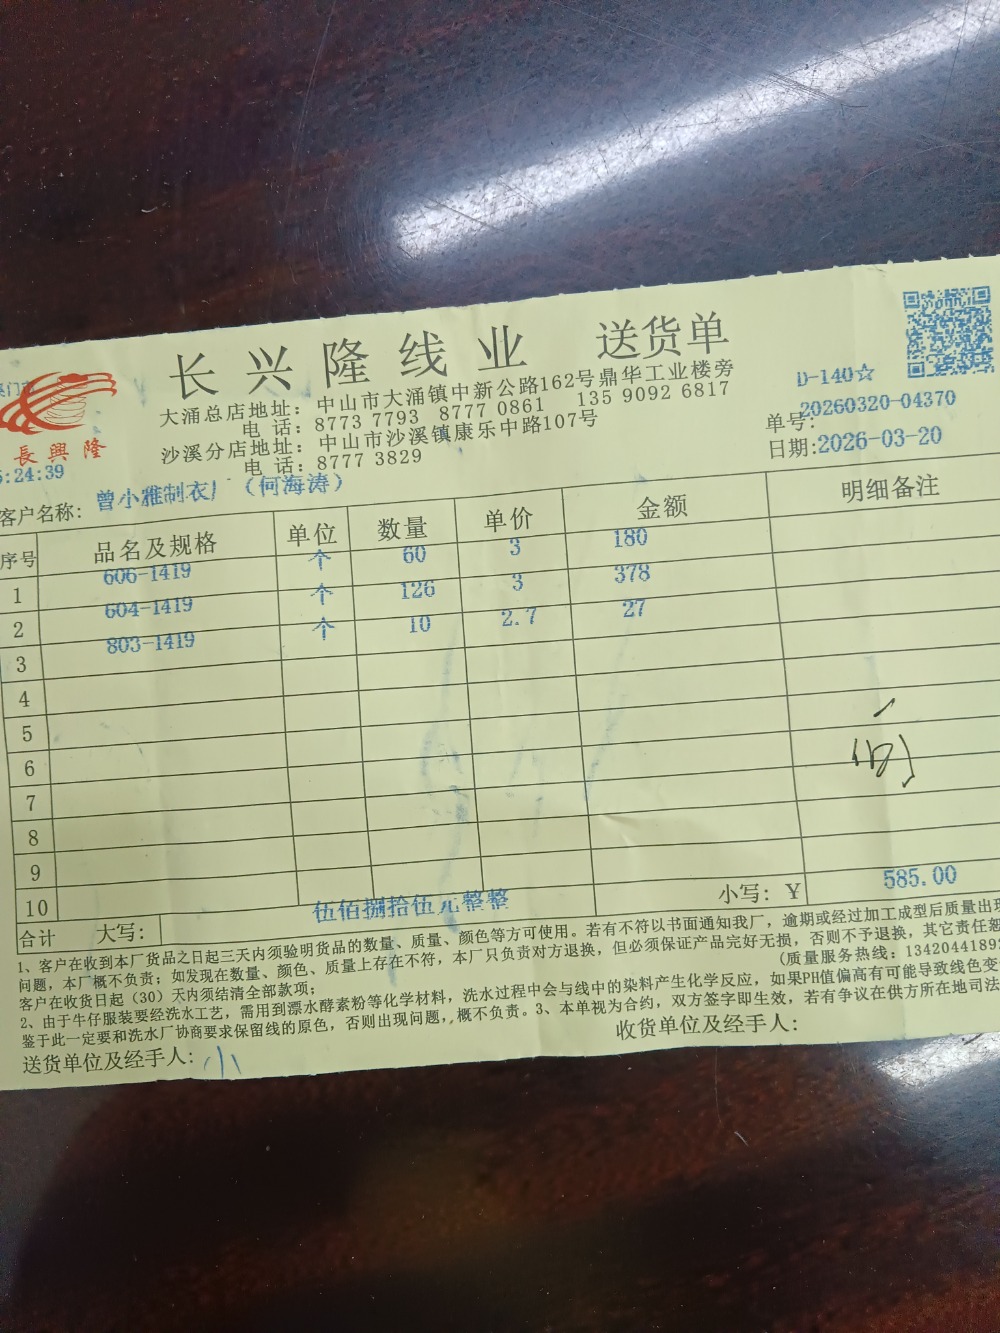 长兴隆线业 送货单
大涌总店地址：中山市大涌镇中新公路162号鼎华工业楼旁
电 话：8773 7793 8777 0861 135 9092 6817
沙溪分店地址：中山市沙溪镇康乐中路107号
电 话：8777 3829
長興隆
5:24:39
D-140☆
单号：20260320-04370
日期:2026-03-20
客户名称：曾小雅制衣厂（何海涛）
序号 品名及规格 单位 数量 单价 金额 明细备注
1 606-1419 个 60 3 180
2 604-1419 个 126 3 378
3 803-1419 个 10 2.7 27
4
5
6
7
8
9
10
合计 大写：伍佰捌拾伍元整整 小写：￥ 585.00
1、客户在收到本厂货品之日起三天内须验明货品的数量、质量、颜色等方可使用。若有不符以书面通知我厂，逾期或经过加工成型后质量出现
问题，本厂概不负责；如发现在数量、颜色、质量上存在不符，本厂只负责对方退换，但必须保证产品完好无损，否则不予退换，其它责任恕
客户在收货日起（30）天内须结清全部款项； （质量服务热线：1342044189
2、由于牛仔服装要经洗水工艺，需用到漂水酵素粉等化学材料，洗水过程中会与线中的染料产生化学反应，如果PH值偏高有可能导致线色变
鉴于此一定要和洗水厂协商要求保留线的原色，否则出现问题，概不负责。3、本单视为合约，双方签字即生效，若有争议在供方所在地司法
送货单位及经手人：小
收货单位及经手人：